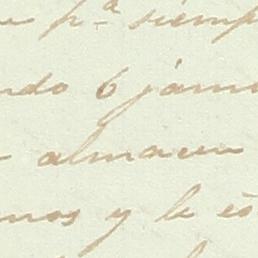 pª siemp
ndo 6 jám
almacen
mos y le es